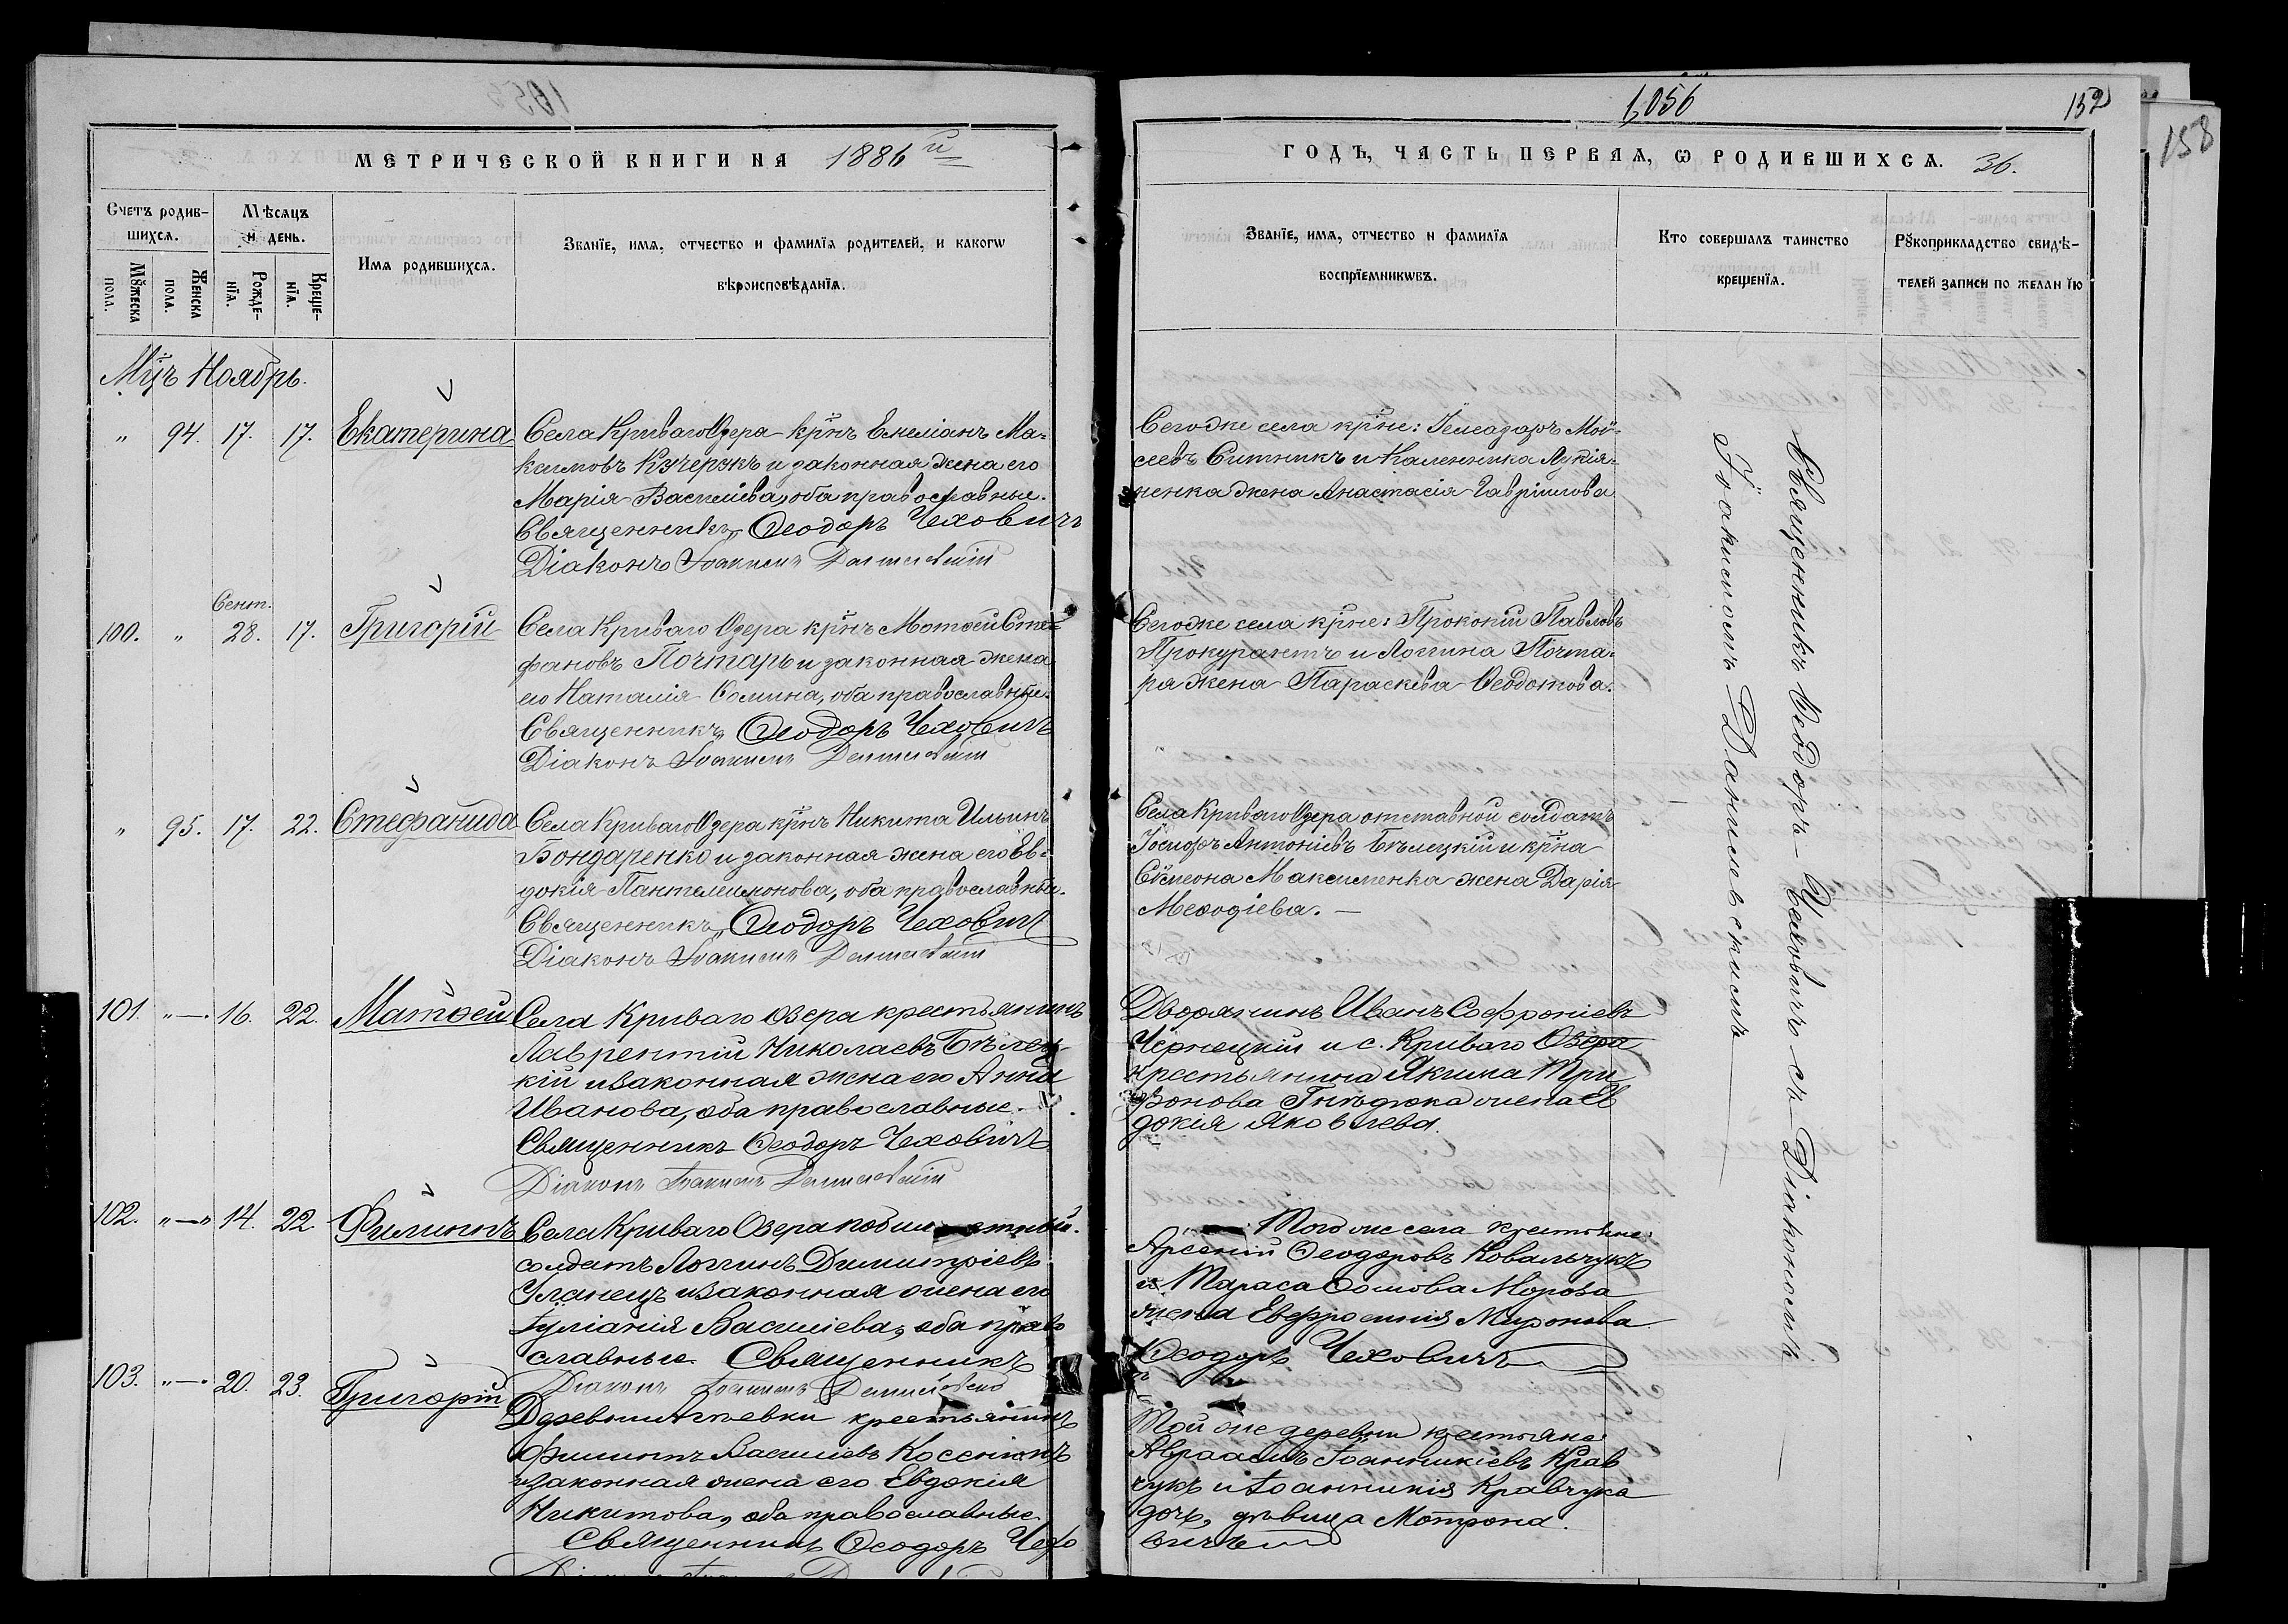 1056
152
158
МЕТРИЧЕСКОЙ КНИГИ НА 1886 й
ГОДЪ, ЧАСТЬ ПЕРВАЯ, Ѡ РОДИВШИХСЯ. 36.
Счетъ родив-
шихся.
Мѣсяцъ
и день.
Мꙋжеска
пола.
Женска
пола.
Рожде-
нїя.
Креще-
нїя.
Имя родившихся.
Званїе, имя, отчество и фамилїя родителей, и какогѡ
вѣроисповѣданїя.
Званїе, имя, отчество и фамилїя
воспрїемникѡвъ.
Кто совершалъ таинство
крещенїя.
Рꙋкоприкладство свидѣ-
телей записи по желанїю
Мцъ Ноябрь.
" 94. 17. 17. Екатерина
Села Криваго Озера крнъ Емеліанъ Ма-
ксимовъ Кучерукъ и законная жена его
Марія Василіева, оба православные.
Священникъ Ѳеодоръ Чеховичъ
Діаконъ Іоакимъ Данилевскій
Сегоже села крне: Елеазаръ Мои-
сеевъ Ситникъ и Каленника Лукія-
ненка жена Анастасія Гавріилова
100. " Сент. 28. 17. Григорій
Села Криваго Озера крнъ Матѳей Сте-
фановъ Почтарь и законная жена
его Наталія Ѳомина, оба православные.
Священникъ Ѳеодоръ Чеховичъ
Діаконъ Іоакимъ Данилевскій
Сегоже села крне: Прокопій Павловъ
Прокурантъ и Логгина Почта-
ря жена Параскева Ѳеодотова.
" 95. 17. 22. Стефанида
Села Криваго Озера крнъ Никита Ильинъ
Бондаренко и законная жена его Ев-
докія Пантелеимонова, оба православные.
Священникъ Ѳеодоръ Чеховичъ
Діаконъ Іоакимъ Данилевскій
Села Криваго Озера отставной солдатъ
Іосифъ Антоніевъ Бѣлецкій и крна
Сѵмеона Максименка жена Дарія
Меѳодіева. —
101. "—" 16. 22. Матѳей
Села Криваго Озера крестьянинъ
Лаврентій Николаевъ Бѣлец-
кій и законная жена его Анна
Иванова, оба православные.
Священникъ Ѳеодоръ Чеховичъ
Діаконъ Іоакимъ Данилевскій
Дворянинъ Иванъ Софроніевъ
Чернецкій и с. Криваго Озера
крестьянина Якима Три-
фонова Гнѣдюка жена Ев
докія Яковлева.
102. "—" 14. 22. Филиппъ
Села Криваго Озера
солдатъ Логгинъ Димитріевъ
Уланецъ и законная жена его
Іуліанія Василіева, оба право
славные. Священникъ
Діаконъ Іоакимъ Данилевскій
Тогоже села крестьяне:
Арсеній Ѳеодоровъ Ковальчукъ
и Тараса Ѳомова Мороза
жена Евфросинія Миронова
Ѳеодоръ Чеховичъ
103. "—" 20. 23. Григорій
Деревни крестьянинъ
Филиппъ Васильевъ Косенюкъ
и законная жена его Евдокія
Никитова, оба православные
Священникъ Ѳеодоръ Чехо
Той же деревни крестьяне
Авраамъ Іоанникіевъ Крав
чукъ и Іоанникія Кравчука
дочь, дѣвица Мотрона.
вичъ
Священникъ Ѳеодоръ Чеховичъ съ Діакономъ
Іоакимомъ Данилевскимъ